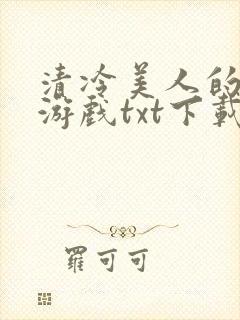 清冷美人的
游戏txt下载
羅可可